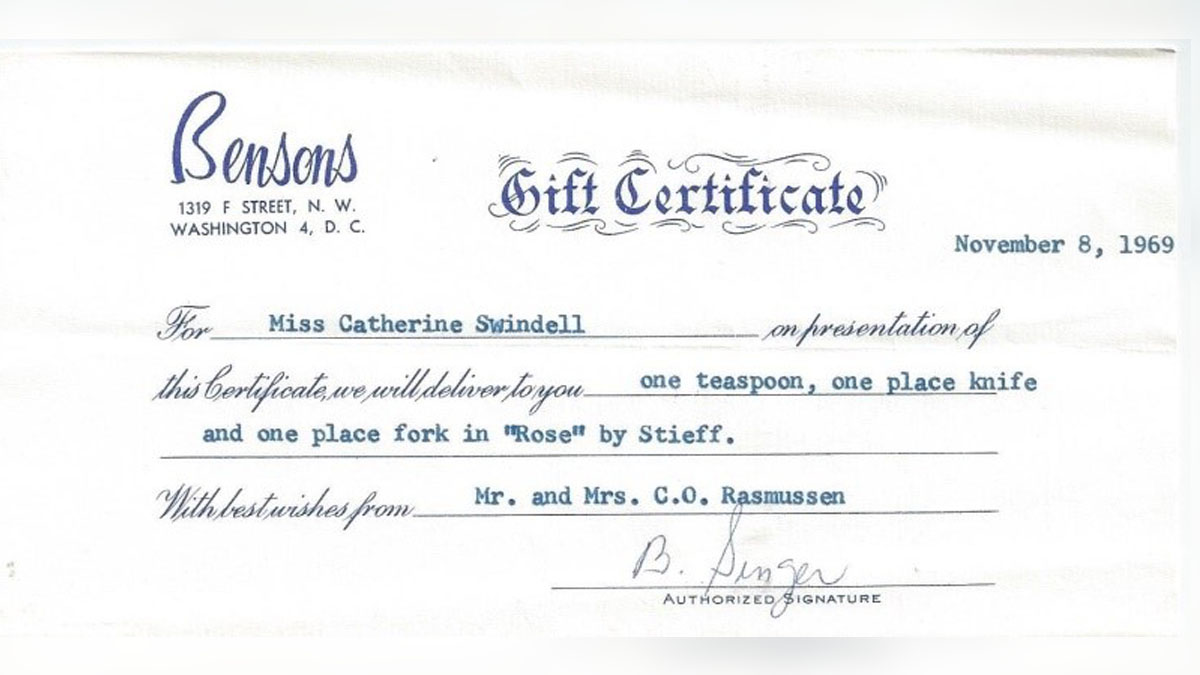 Bensons
1319 F STREET, N. W.
WASHINGTON 4, D. C.
Gift Certificate
November 8, 1969
For Miss Catherine Swindell on presentation of
this Certificate, we will deliver to you one teaspoon, one place knife
and one place fork in "Rose" by Stieff.
With best wishes from Mr. and Mrs. C.O. Rasmussen
B. Singer
AUTHORIZED SIGNATURE